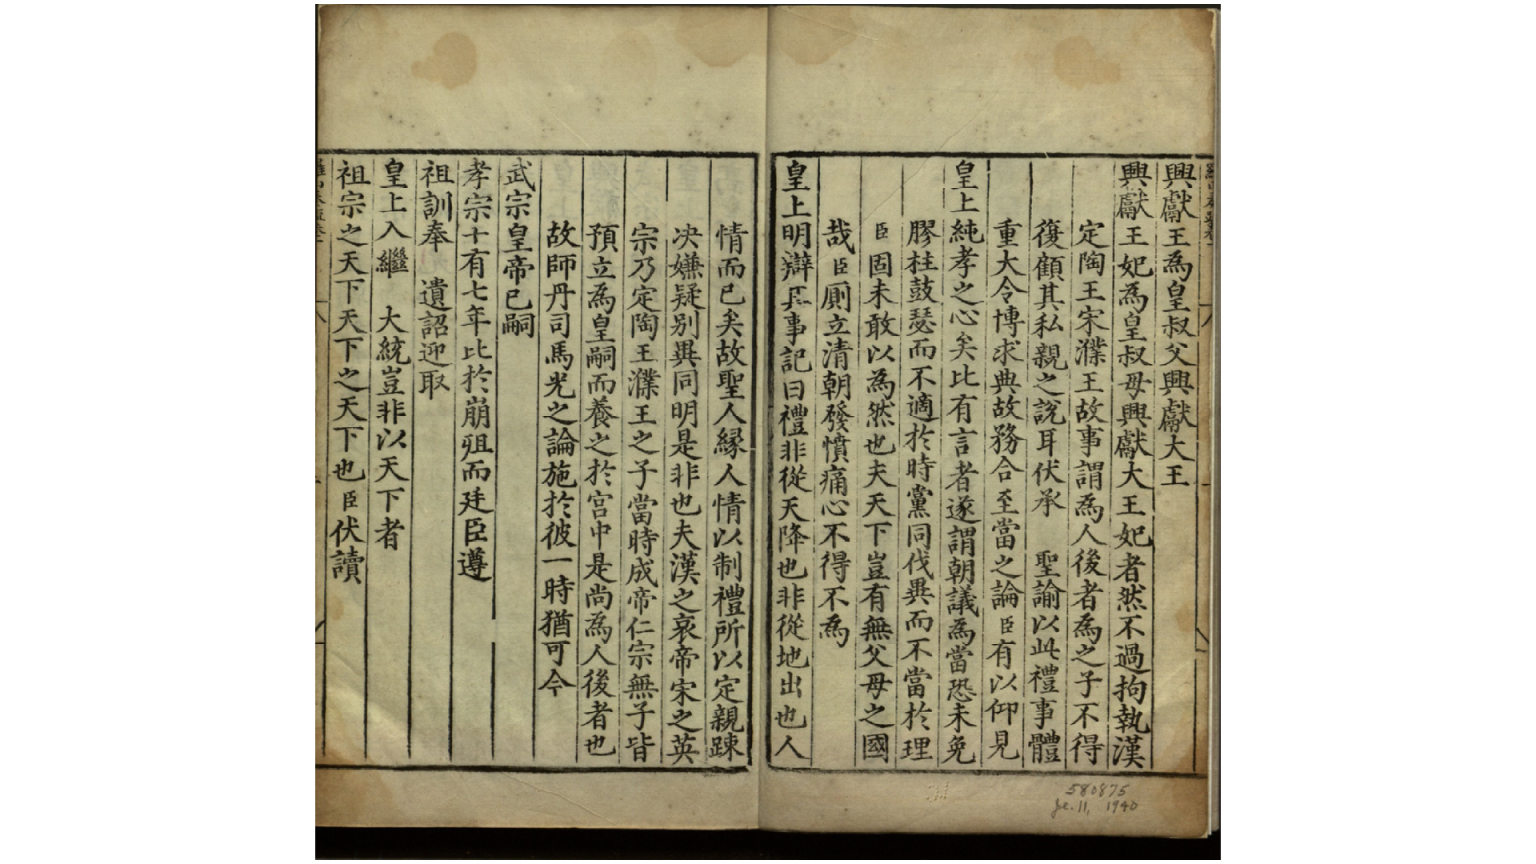 興獻王為皇叔父興獻大王
興獻王妃為皇叔母興獻大王妃者然不過拘執漢
定陶王宋濮王故事謂為人後者為之子不得
復顧其私親之說耳伏承　聖諭以此禮事體
重大令博求典故務合至當之論臣有以仰見
皇上純孝之心矣比有言者遂謂朝議為當恐未免
膠柱鼓瑟而不適於時黨同伐異而不當於理
臣固未敢以為然也夫天下豈有無父母之國
哉臣厠立清朝發憤痛心不得不為
皇上明辯其事記曰禮非從天降也非從地出也人
情而已矣故聖人緣人情以制禮所以定親踈
决嫌疑别異同明是非也夫漢之哀帝宋之英
宗乃定陶王濮王之子當時成帝仁宗無子皆
預立為皇嗣而養之於宫中是尚為人後者也
故師丹司馬光之論施於彼一時猶可今
武宗皇帝已嗣
孝宗十有七年比於崩殂而廷臣遵
祖訓奉　遺詔迎取
皇上入繼　大統豈非以天下者
祖宗之天下天下之天下也臣伏讀
580875
Je. 11, 1940